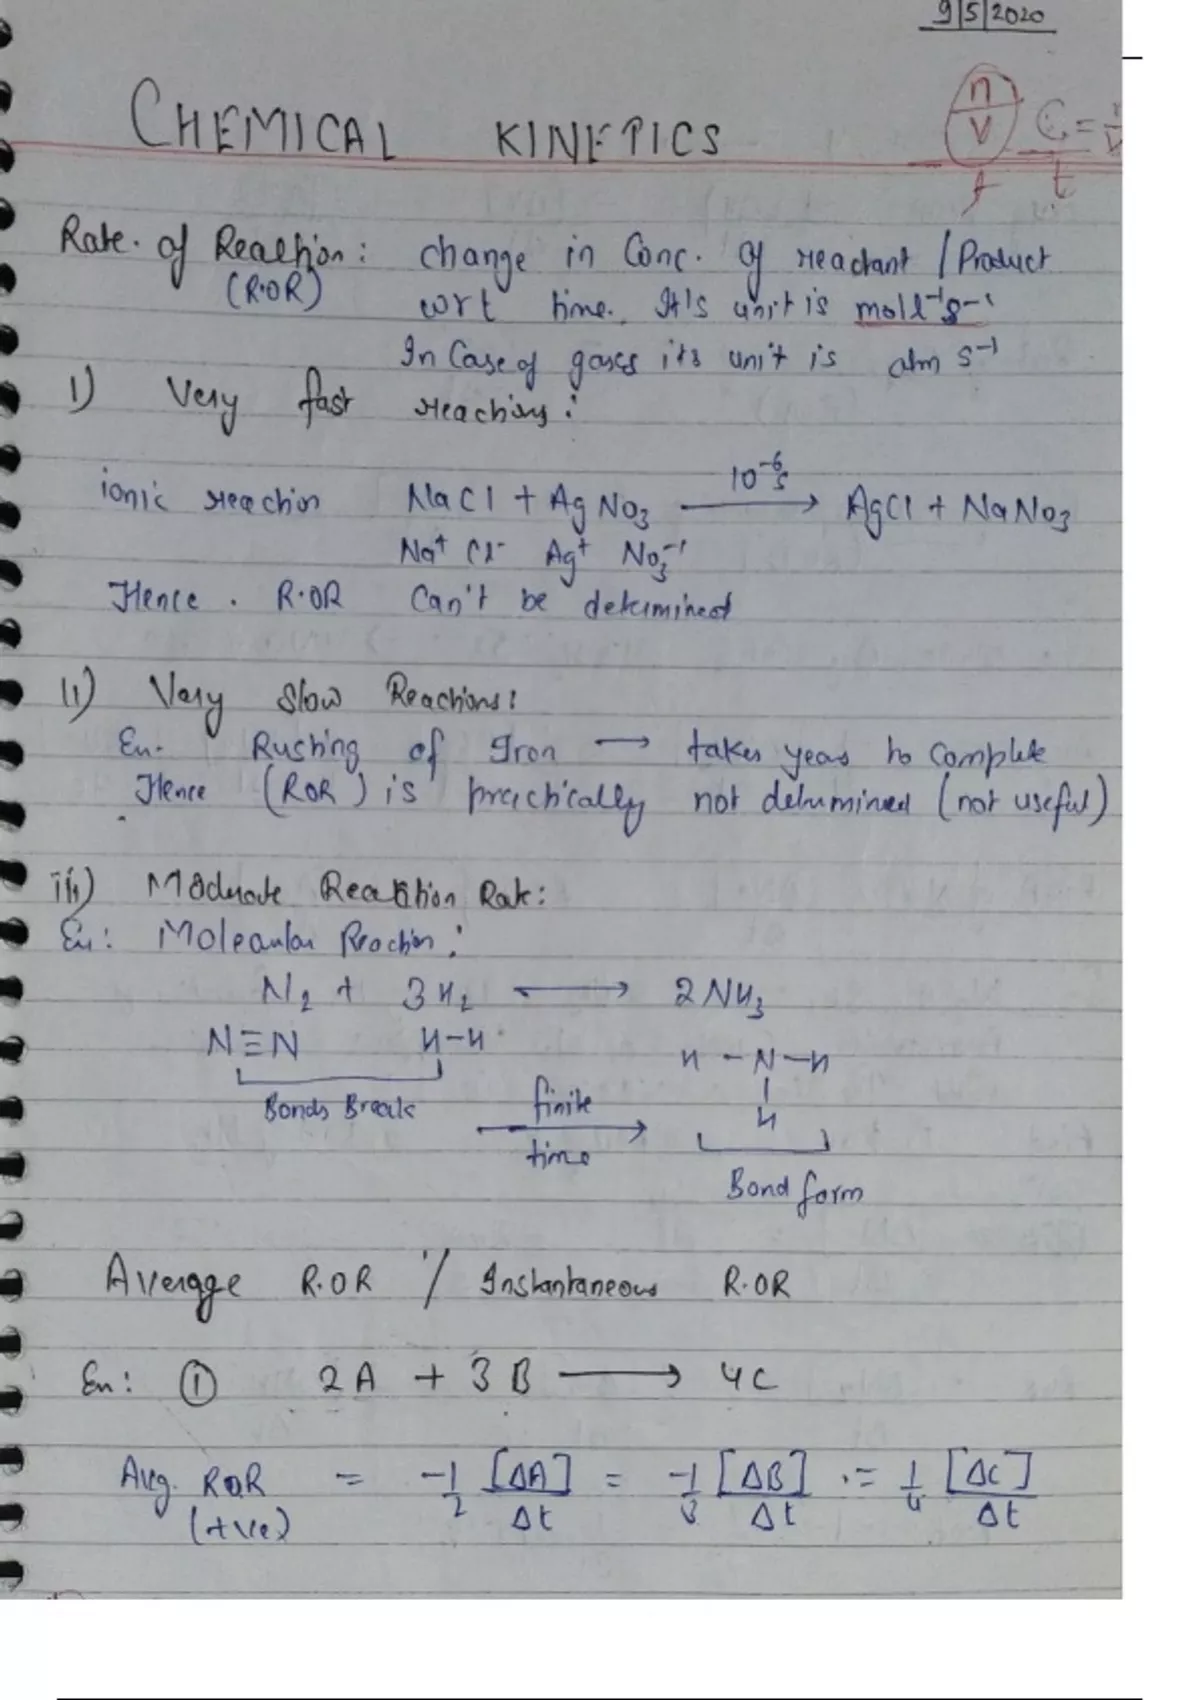 9|5|2020
CHEMICAL KINETICS
n/v / t C = n/v / t
Rate. of Reaction: change in Conc. of reactant / Product
(R.OR) wrt time. It's unit is mol l⁻¹ s⁻¹
In Case of gases its unit is atm s⁻¹
i) Very fast reactions:
ionic reaction NaCl + AgNO₃ —10⁻⁶s→ AgCl + NaNO₃
Na⁺ Cl⁻ Ag⁺ NO₃⁻¹
Hence . R.OR Can't be determined
ii) Very Slow Reactions:
Ex. Rusting of Iron → takes years to complete
Hence (ROR) is practically not determined (not useful)
iii) Moderate Reaction Rate:
Ex: Molecular Reaction:
N₂ + 3H₂ ⟷ 2NH₃
N≡N H-H H-N-H
H
Bonds Break finite time → Bond form
Average R.OR / Instantaneous R.OR
Ex: ① 2A + 3B → 4C
Avg. ROR = -1/2 [ΔA]/Δt = -1/3 [ΔB]/Δt = 1/4 [ΔC]/Δt
(+ve)